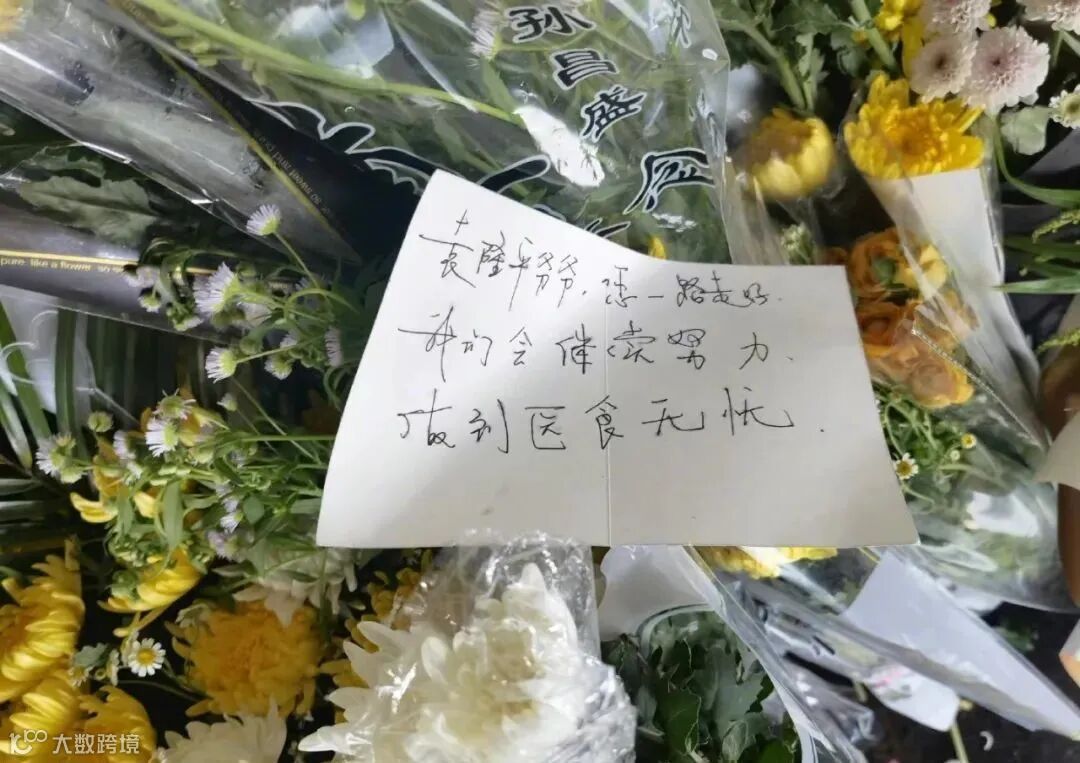 孙昌盛
袁隆平爷爷,您一路走好.
我们会继续努力.
做到医食无忧.
pure. like a flower. so
大数跨境